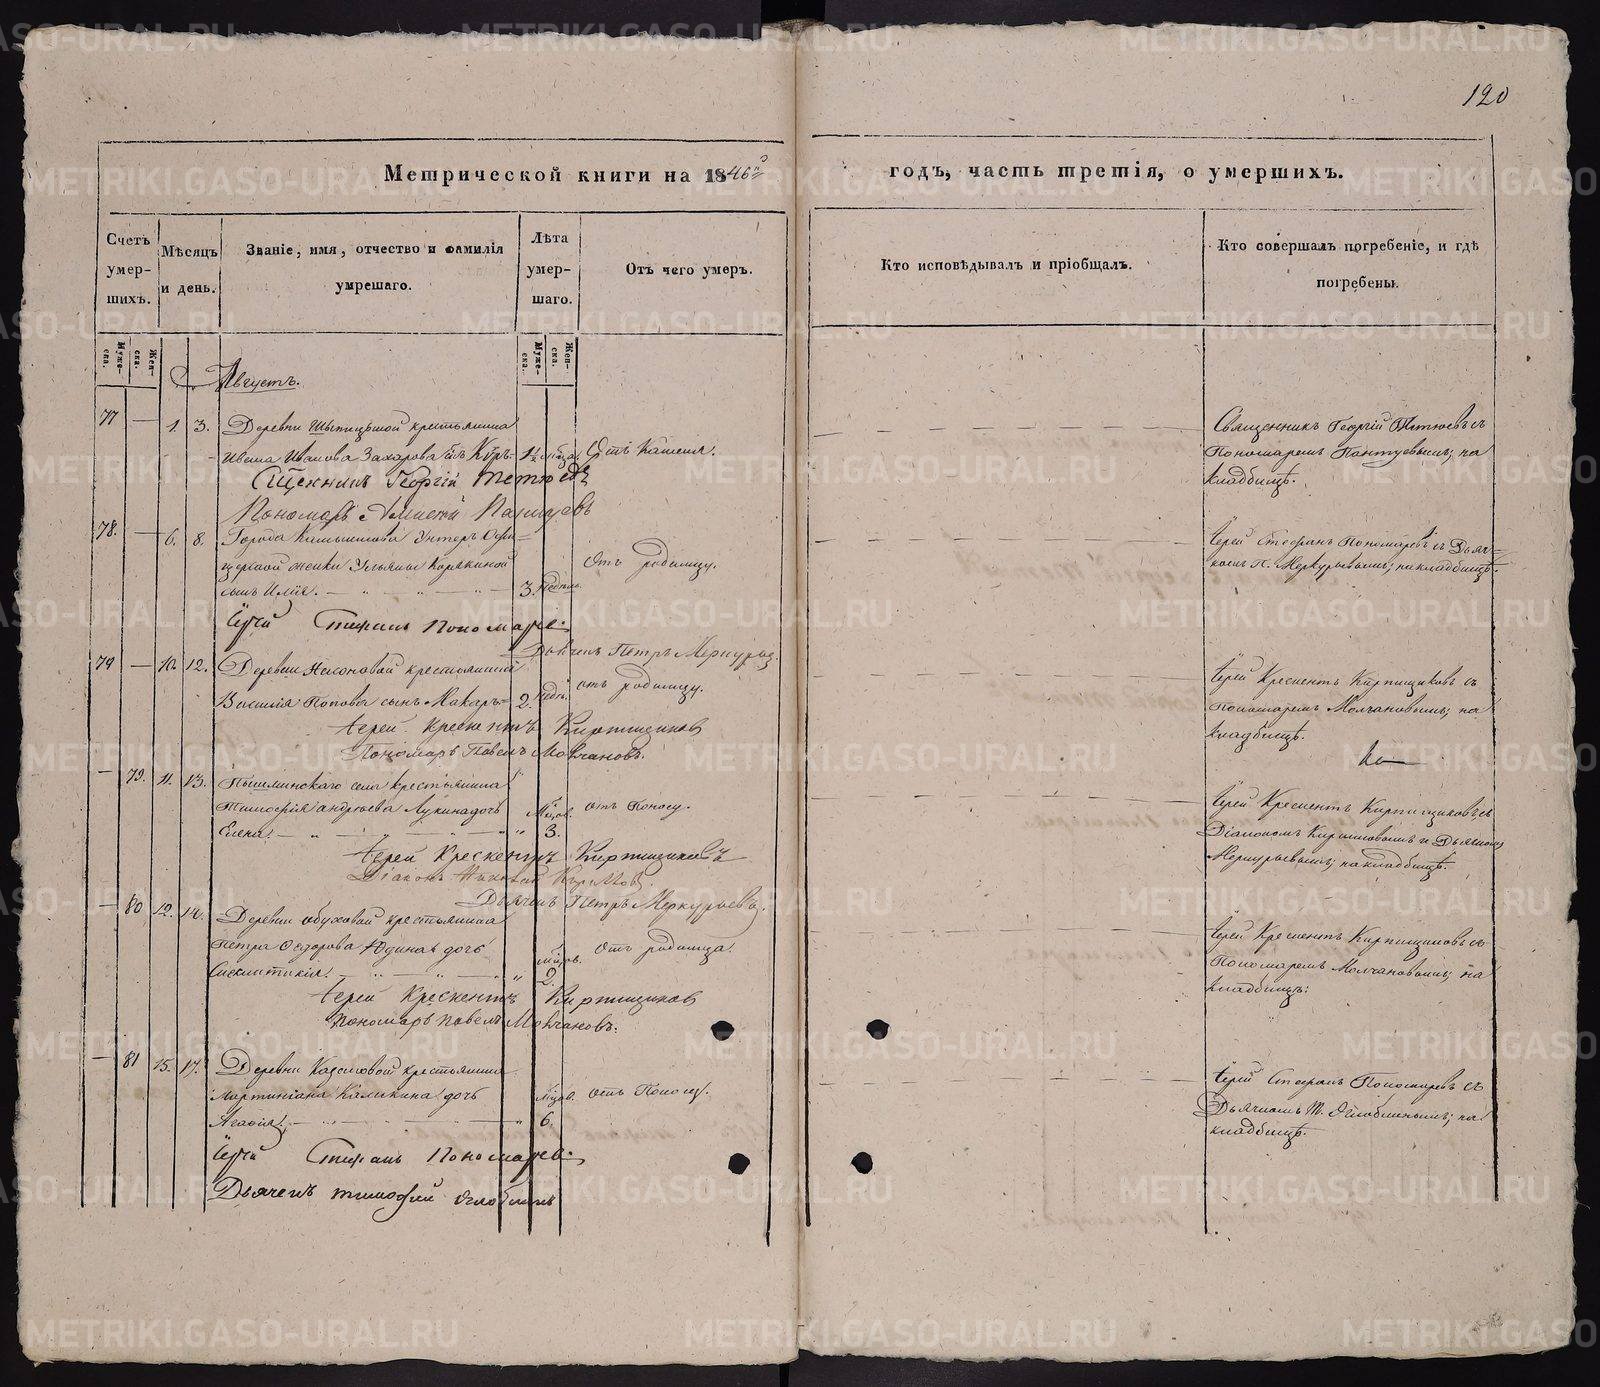 120
Метрической книги на 1846й
годъ, часть третія, о умершихъ.
Счетъ умер- шихъ.
Мѣсяцъ и день.
Званіе, имя, отчество и фамилія умрешаго.
Лѣта умер- шаго.
Отъ чего умеръ.
Кто исповѣдывалъ и пріобщалъ.
Кто совершалъ погребеніе, и гдѣ погребены.
Муже- ска.
Жен- ска.
Муже- ска.
Жен- ска.
Августъ.
77 — 1. 3. Деревни крестьянина
Ивана Иванова Захарова сынъ
Отъ Кашеля.
Священникъ Георгій Тетюевъ съ
Пономаремъ Пантуевымъ; на
кладбищѣ.
Сщенникъ Георгій Тетюевъ
Пономарь Пантуевъ
78. — 6. 8. Города Камышлова Унтеръ Офи=
церской женки Ульяны Корякиной
сынъ Илія. 3. недѣль
Отъ родимцу.
Іерей Стефанъ Пономаревъ съ Дьяч=
комъ П. Меркурьевымъ; на кладбищѣ.
Іерей Стефанъ Пономаревъ
Дьячекъ Петръ Меркурьев
79 — 10. 12. Деревни крестьянина
Василія Попова сынъ Макаръ= 2. недѣ.
отъ родимцу.
Іерей Крескентъ Кирпищиковъ съ
Пономаремъ Молчановымъ; на
кладбищѣ.
Іерей Крескентъ Кирпищиковъ
Пономарь Павелъ Молчановъ.
— 79. 11. 13. Пышминскаго села крестьянина
Тимофея андреева Лукина дочь
Елена. Мѣсов. 3.
отъ Поносу.
Іерей Крескентъ Кирпищиковъ, съ
Діакономъ Кирилловымъ и Дьячком
Меркурьевымъ; на кладбищѣ.
Іерей Крескентъ Кирпищиковъ
Діаконъ Николай Кириллов.
Дьячекъ Петръ Меркурьевъ.
— 80 12. 14. Деревни обуховой крестьянина
Петра Федорова Юдина дочь
Синклитикія. Мѣсов. 2.
Отъ родимца.
Іерей Крескентъ Кирпищиковъ съ
Пономаремъ Молчановымъ; на
кладбищѣ.
Іерей Крескентъ Кирпищиков
Пономарь павелъ Молчановъ.
— 81 15. 17. Деревни крестьянина
мартиніана Каликина дочь
Агафія. Мѣсов. 6.
отъ Поносу.
Іерей Стефанъ Пономаревъ съ
Дьячкомъ Т. Оглоблинымъ; на
кладбищѣ.
Іерей Стефанъ Пономарев.
Дьячекъ тимофей Оглоблинъ
METRIKI.GASO-URAL.RU